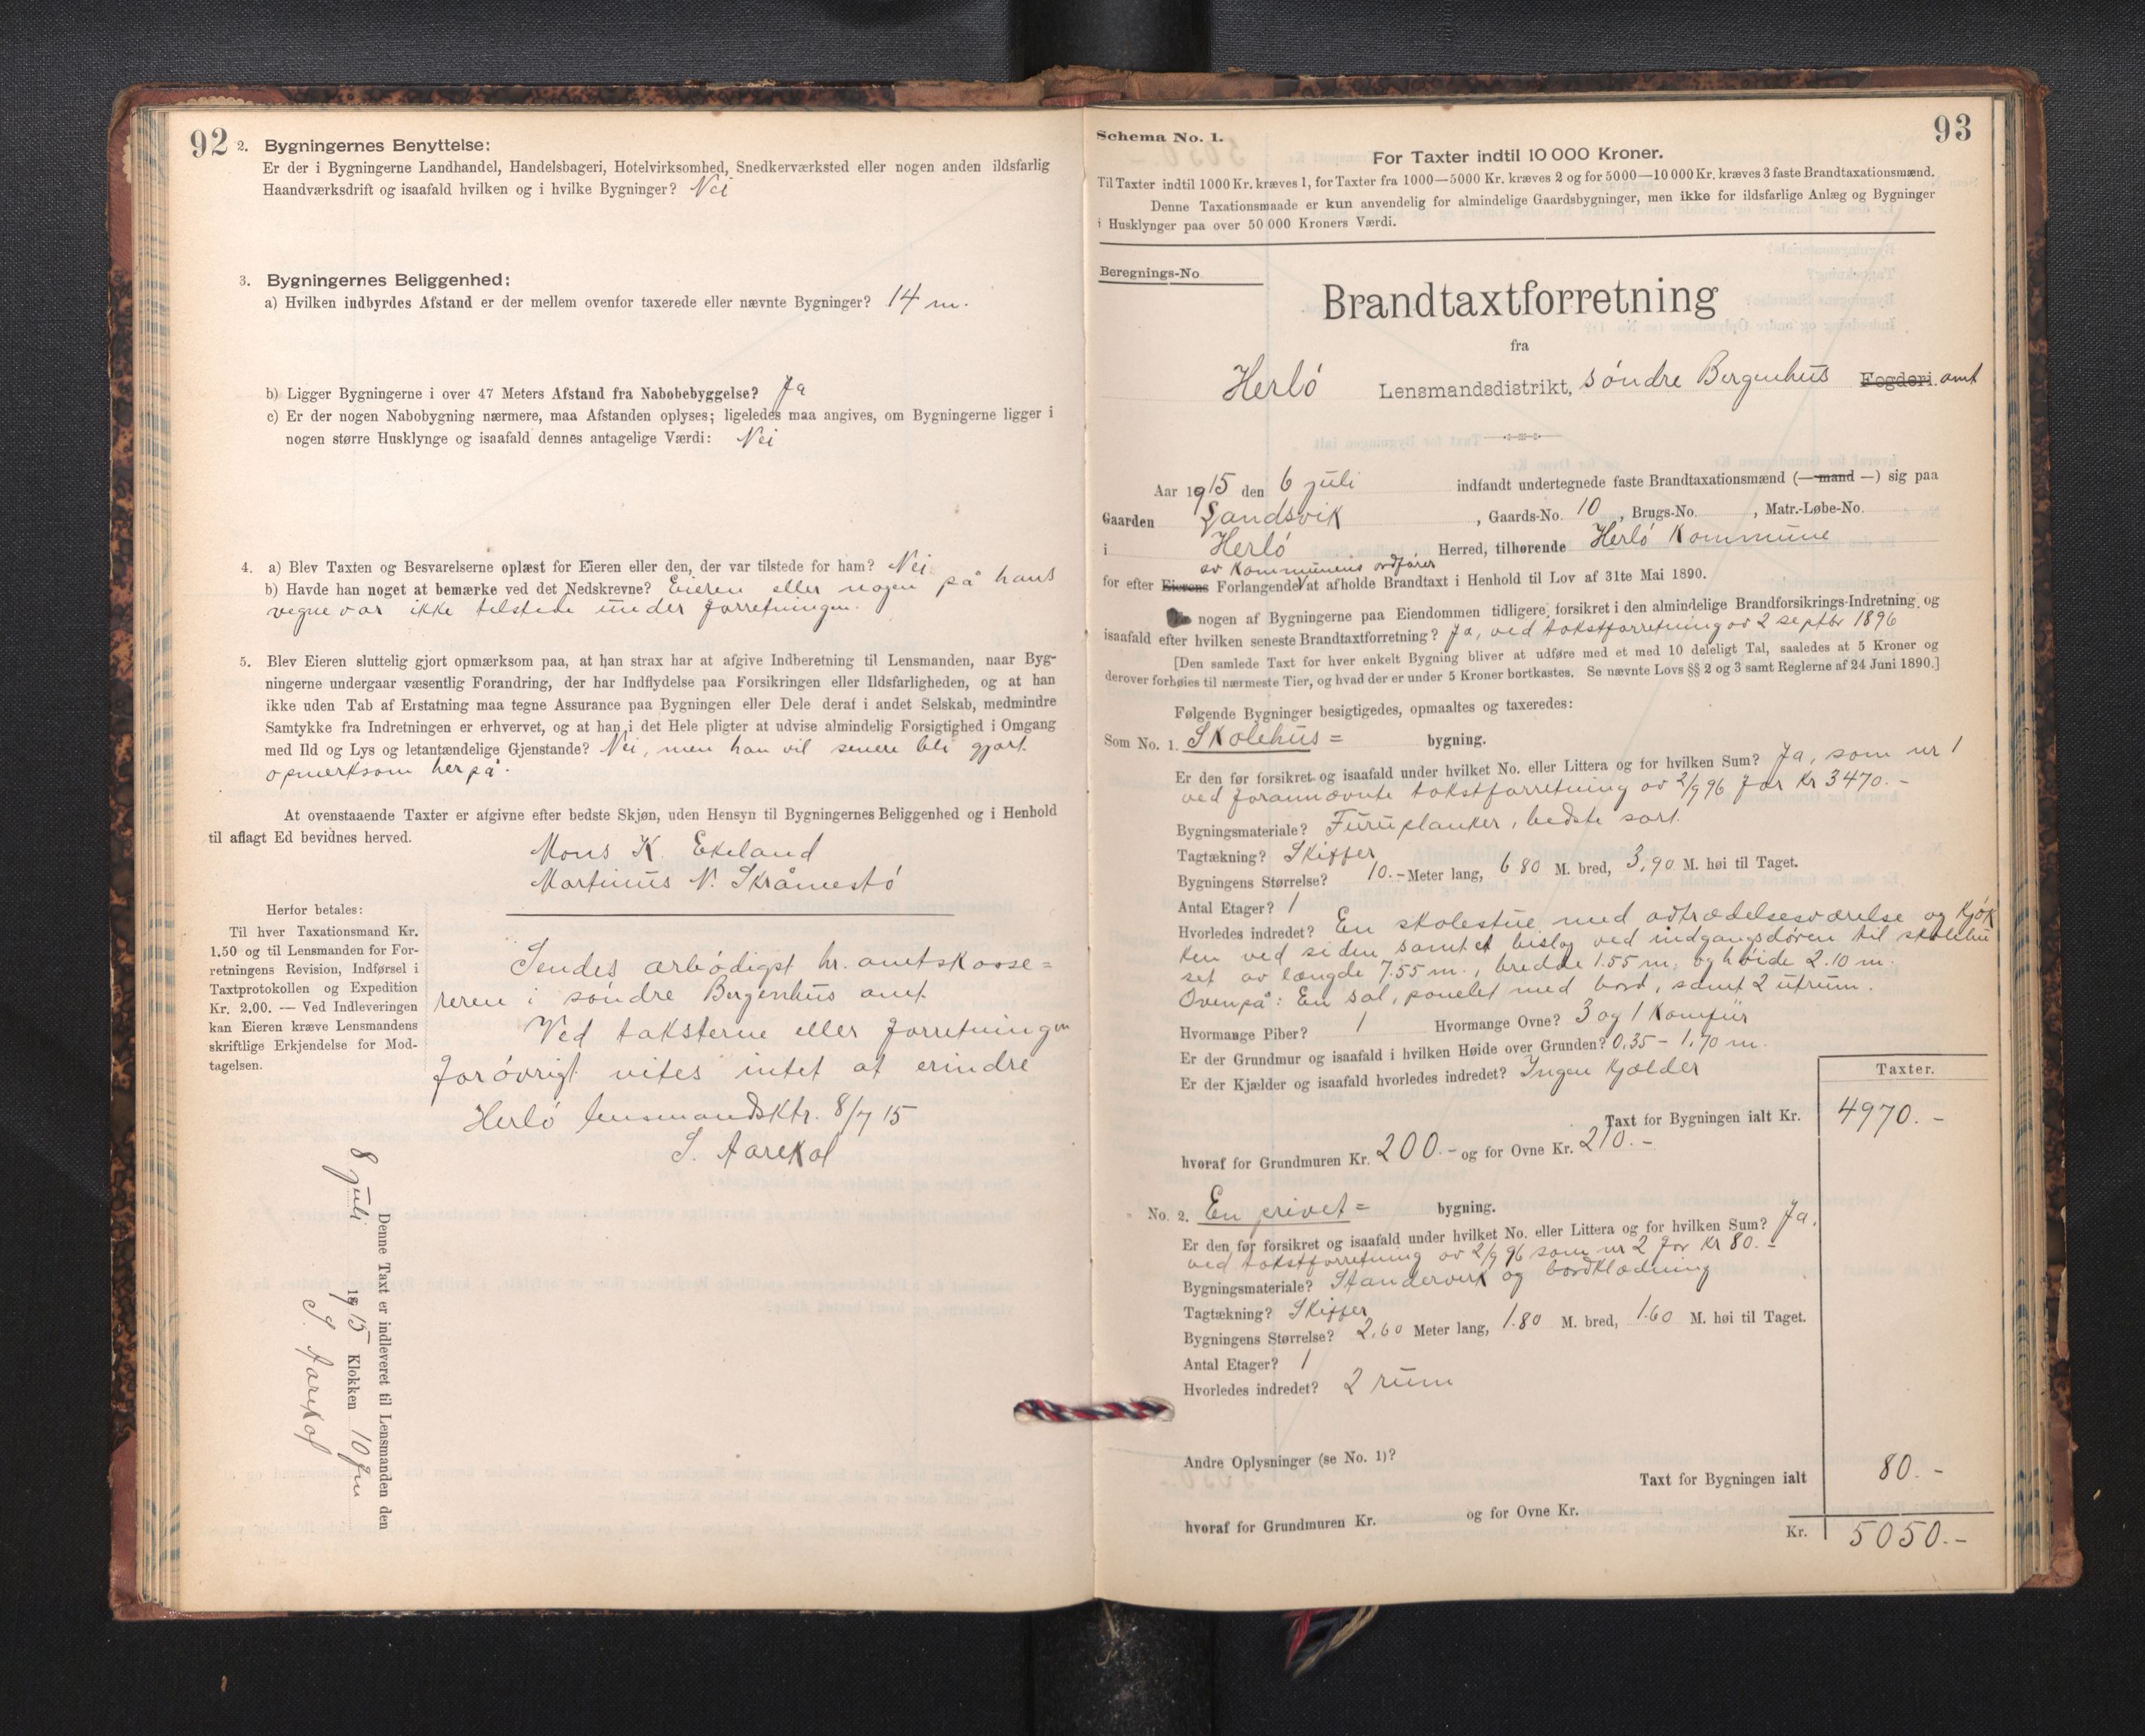 92
2. Bygningernes Benyttelse:
Er der i Bygningerne Landhandel, Handelsbageri, Hotelvirksomhed, Snedkerværksted eller nogen anden ildsfarlig
Haandværksdrift og isaafald hvilken og i hvilke Bygninger? Nei
3. Bygningernes Beliggenhed:
a) Hvilken indbyrdes Afstand er der mellem ovenfor taxerede eller nævnte Bygninger? 14 m.
b) Ligger Bygningerne i over 47 Meters Afstand fra Nabobebyggelse? Ja
c) Er der nogen Nabobygning nærmere, maa Afstanden oplyses; ligeledes maa angives, om Bygningerne ligger i
nogen større Husklynge og isaafald dennes antagelige Værdi: Nei
4. a) Blev Taxten og Besvarelserne oplæst for Eieren eller den, der var tilstede for ham? Nei
b) Havde han noget at bemærke ved det Nedskrevne? Eieren eller nogen på hans
vegne var ikke tilstede under forretningen.
5. Blev Eieren sluttelig gjort opmærksom paa, at han strax har at afgive Indberetning til Lensmanden, naar Byg-
ningerne undergaar væsentlig Forandring, der har Indflydelse paa Forsikringen eller Ildsfarligheden, og at han
ikke uden Tab af Erstatning maa tegne Assurance paa Bygningen eller Dele deraf i andet Selskab, medmindre
Samtykke fra Indretningen er erhvervet, og at han i det Hele pligter at udvise almindelig Forsigtighed i Omgang
med Ild og Lys og letantændelige Gjenstande? Nei, men han vil senere bli gjort
opmerksom herpå.
At ovenstaaende Taxter er afgivne efter bedste Skjøn, uden Hensyn til Bygningernes Beliggenhed og i Henhold
til aflagt Ed bevidnes herved.
Mons K. Ekeland
Martinus N. Skråmestø
Herfor betales:
Til hver Taxationsmand Kr.
1.50 og til Lensmanden for For-
retningens Revision, Indførsel i
Taxtprotokollen og Expedition
Kr. 2.00. — Ved Indleveringen
kan Eieren kræve Lensmandens
skriftlige Erkjendelse for Mod-
tagelsen.
Sendes ærbødigst hr. amtskasse=
reren i søndre Bergenhus amt.
Ved taksterne eller forretningen
forøvrigt vites intet at erindre
Herlø lensmandsktr. 8/7 15
S. Aarekol
Denne Taxt er indleveret til Lensmanden den
8 juli 1915 Klokken 10 fm
S. Aarekol
93
Schema No. 1.
For Taxter indtil 10 000 Kroner.
Til Taxter indtil 1000 Kr. kræves 1, for Taxter fra 1000—5000 Kr. kræves 2 og for 5000—10 000 Kr. kræves 3 faste Brandtaxationsmænd.
Denne Taxationsmaade er kun anvendelig for almindelige Gaardsbygninger, men ikke for ildsfarlige Anlæg og Bygninger
i Husklynger paa over 50 000 Kroners Værdi.
Beregnings-No
Brandtaxtforretning
fra
Herlø Lensmandsdistrikt, søndre Bergenhus Fogderi. amt
Aar 1915 den 6 juli indfandt undertegnede faste Brandtaxationsmænd (— mand —) sig paa
Gaarden Landsvik, Gaards-No. 10, Brugs-No. , Matr.-Løbe-No.
i Herlø Herred, tilhørende Herlø Kommune
av Kommunens ordfører
for efter Eierens Forlangende at afholde Brandtaxt i Henhold til Lov af 31te Mai 1890.
nogen af Bygningerne paa Eiendommen tidligere forsikret i den almindelige Brandforsikrings-Indretning og
isaafald efter hvilken seneste Brandtaxtforretning? Ja, ved takstforretning av 2 septbr 1896
[Den samlede Taxt for hver enkelt Bygning bliver at udføre med et med 10 deleligt Tal, saaledes at 5 Kroner og
derover forhøies til nærmeste Tier, og hvad der er under 5 Kroner bortkastes. Se nævnte Lovs §§ 2 og 3 samt Reglerne af 24 Juni 1890.]
Følgende Bygninger besigtigedes, opmaaltes og taxeredes:
Som No. 1. Skolehus= bygning.
Er den før forsikret og isaafald under hvilket No. eller Littera og for hvilken Sum? Ja, som nr 1
ved forannævnte takstforretning av 2/9 96 for Kr 3470.-
Bygningsmateriale? Furuplanker, bedste sort.
Tagtækning? Skiffer
Bygningens Størrelse? 10.- Meter lang, 6 80 M. bred, 3,90 M. høi til Taget.
Antal Etager? 1
Hvorledes indredet? En skolestue med avtrædelsesværelse og kjøk
ken ved siden samt et bislag ved indgangsdøren til skolehu
set av længde 7.55 m., bredde 1.55 m. og høide 2.10 m.
Ovenpå: En sal, panelet med bord, samt 2 utrum.
Hvormange Piber? 1 Hvormange Ovne? 3 og 1 Komfür
Er der Grundmur og isaafald i hvilken Høide over Grunden? 0,35 - 1,70 m.
Er der Kjælder og isaafald hvorledes indredet? Ingen kjælder
Taxter.
Taxt for Bygningen ialt Kr. 4970.-
hvoraf for Grundmuren Kr. 200.- og for Ovne Kr. 210.-
No. 2. En privet= bygning.
Er den før forsikret og isaafald under hvilket No. eller Littera og for hvilken Sum? Ja,
ved takstforretning av 2/9 96 som nr 2 for Kr 80.-
Bygningsmateriale? Standerverk og bordklædning
Tagtækning? Skiffer
Bygningens Størrelse? 2,60 Meter lang, 1.80 M. bred, 1.60 M. høi til Taget.
Antal Etager? 1
Hvorledes indredet? 2 rum
Andre Oplysninger (se No. 1)?
Taxt for Bygningen ialt 80.-
hvoraf for Grundmuren Kr. og for Ovne Kr.
Kr. 5050.-